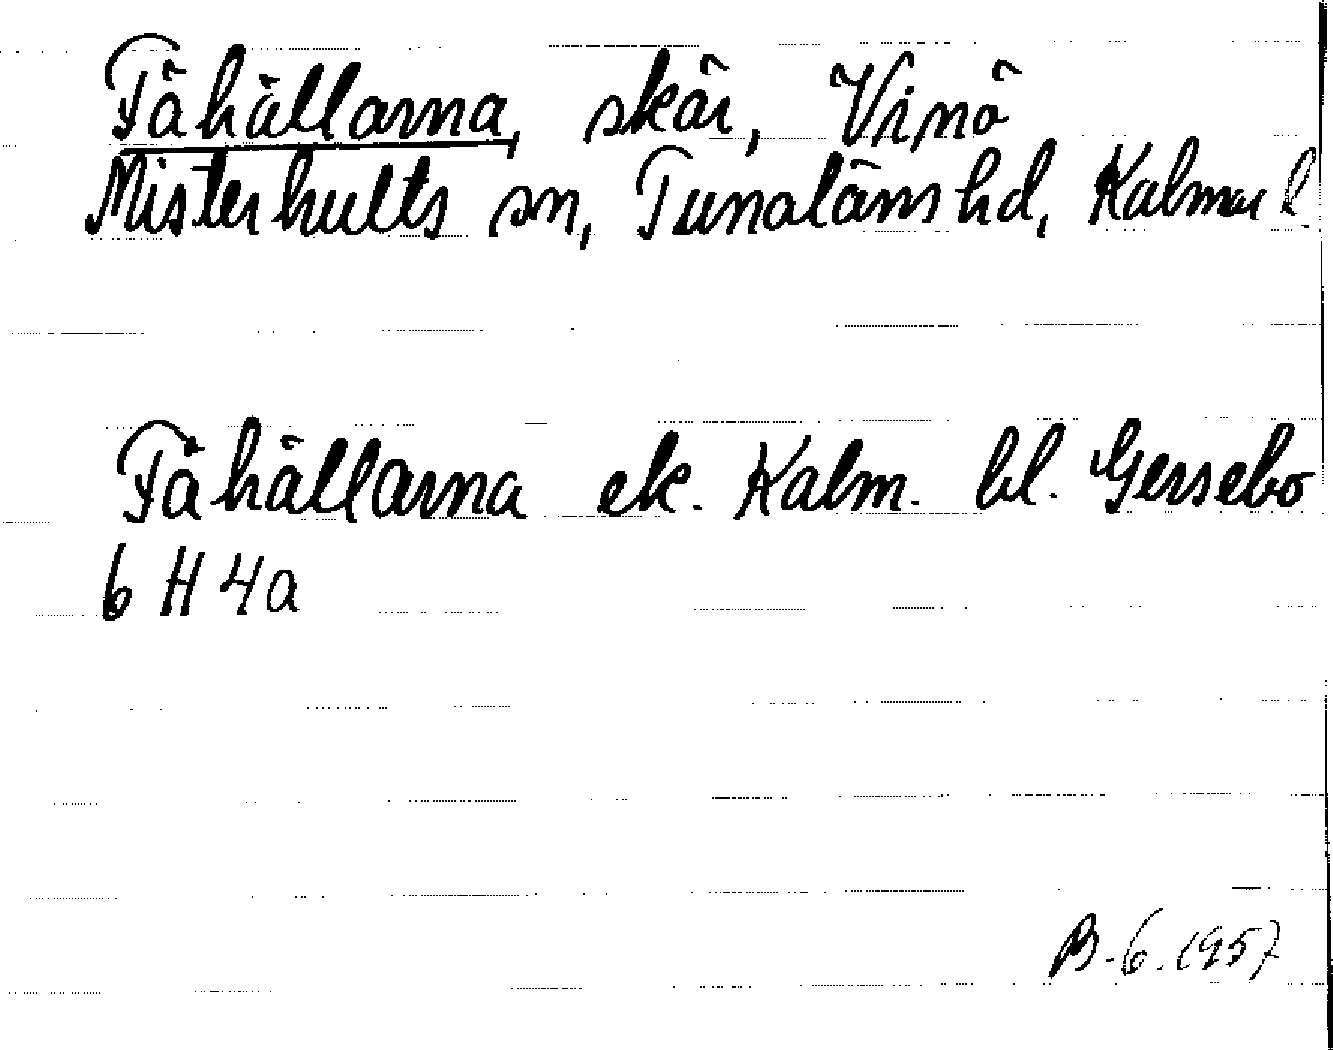 Fåhällarna, skär, Vinö
Misterhults sn, Tunaläns hd, Kalmar l.
Fåhällarna ek. Kalm. bl. Gersebo
6 H 4a
13.6.1957